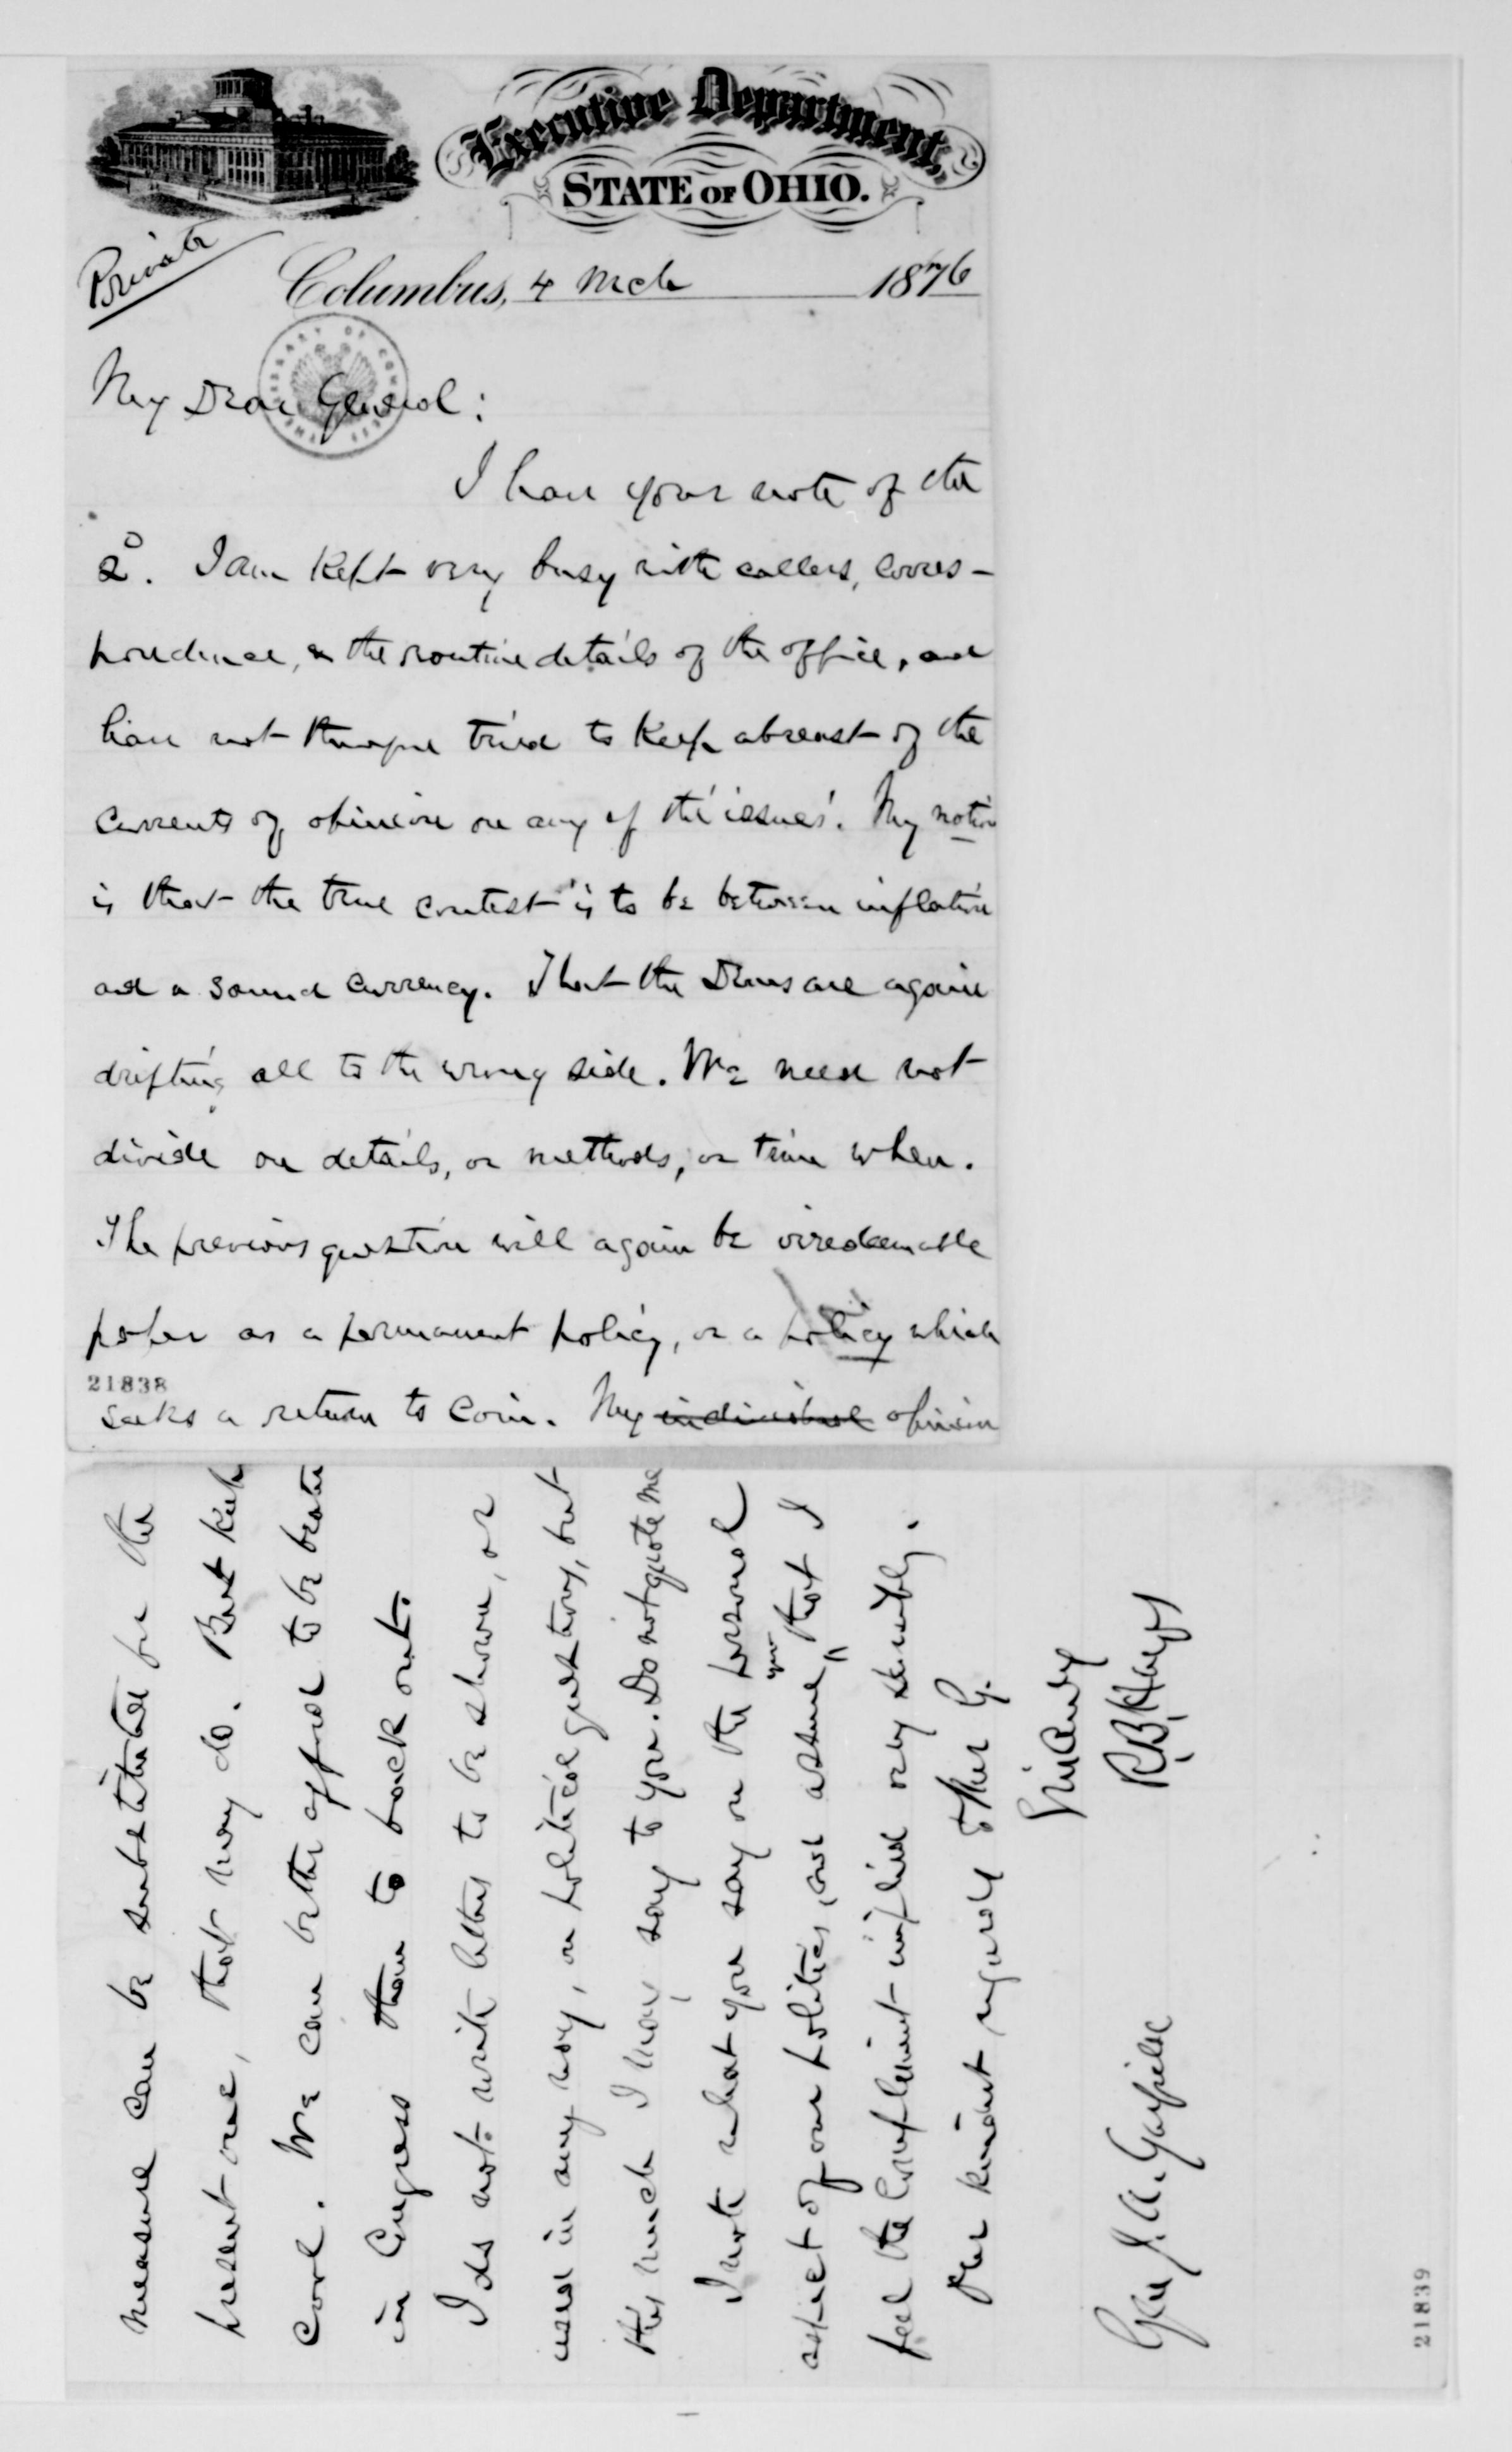 Executive Department,
STATE OF OHIO.
Private
Columbus, 4 Mch 1876
My Dear General:
I have your note of the
2d. I am kept very busy with callers, corres-
pondence, & the routine details of the office, and
have not therefore tried to keep abreast of the
currents of opinion on any of the 'issues'. My notion
is that the true contest is to be between inflation
and a sound currency. That the Dems are again
drifting all to the wrong side. We need not
divide on details, or methods, or time when.
The previous question will again be irredeemable
paper as a permanent policy, or a policy which
seeks a return to coin. My individual opinion
21838
measure can be substituted for the
present one, that may do. But keep
cool. We can better afford to be beaten
in Congress than to back out.
I do not write letters to be shown, or
used in any way, on political questions, but
this much I may say to you. Do not quote me
I note what you say on the personal
aspect of our politics, and assure you that I
feel the compliment implied very sensibly.
My kindest regards to Mrs G.
Sincerely
R.B. Hayes
Gen J. A. Garfield
21839